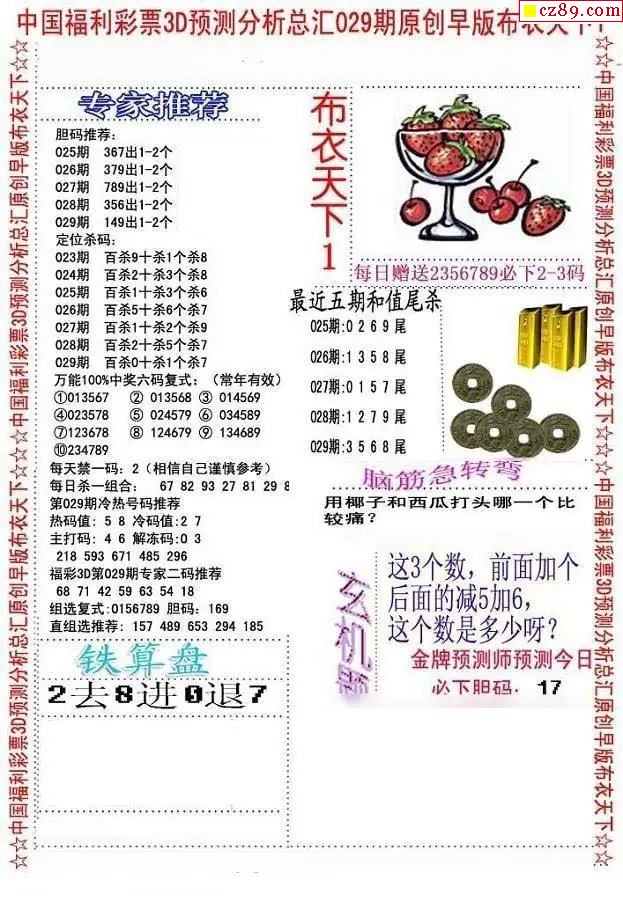 cz89.com
中国福利彩票3D预测分析总汇029期原创早版布衣天下1
☆☆中国福利彩票3D预测分析总汇原创早版布衣天下☆☆中国福利彩票3D预测分析总汇原创早版布衣天下☆☆
专家推荐
胆码推荐:
025期 367出1-2个
026期 379出1-2个
027期 789出1-2个
028期 356出1-2个
029期 149出1-2个
定位杀码:
023期 百杀9十杀1个杀8
024期 百杀2十杀3个杀8
025期 百杀1十杀3个杀6
026期 百杀5十杀6个杀7
027期 百杀1十杀2个杀9
028期 百杀2十杀5个杀7
029期 百杀0十杀1个杀7
万能100%中奖六码复式:(常年有效)
①013567 ② 013568 ③ 014569
④023578 ⑤ 024579 ⑥ 034589
⑦123678 ⑧ 124679 ⑨ 134689
⑩234789
每天禁一码:2(相信自己谨慎参考)
每日杀一组合: 67 82 93 27 81 29 8
第029期冷热号码推荐
热码值: 5 8 冷码值:2 7
主打码: 4 6 解冻码:0 3
218 593 671 485 296
福彩3D第029期专家二码推荐
68 71 42 59 63 54 18
组选复式:0156789 胆码: 169
直组选推荐: 157 489 653 294 185
铁算盘
2去8进0退7
布衣天下1
每日赠送2356789必下2-3码
最近五期和值尾杀
025期:0 2 6 9 尾
026期:1 3 5 8 尾
027期:0 1 5 7 尾
028期:1 2 7 9 尾
029期:3 5 6 8 尾
脑筋急转弯
用椰子和西瓜打头哪一个比
较痛?
玄机
这3个数,前面加个
后面的减5加6,
这个数是多少呀?
金牌预测师预测今日
必下胆码. 17
☆☆中国福利彩票3D预测分析总汇原创早版布衣天下☆☆中国福利彩票3D预测分析总汇原创早版布衣天下☆☆